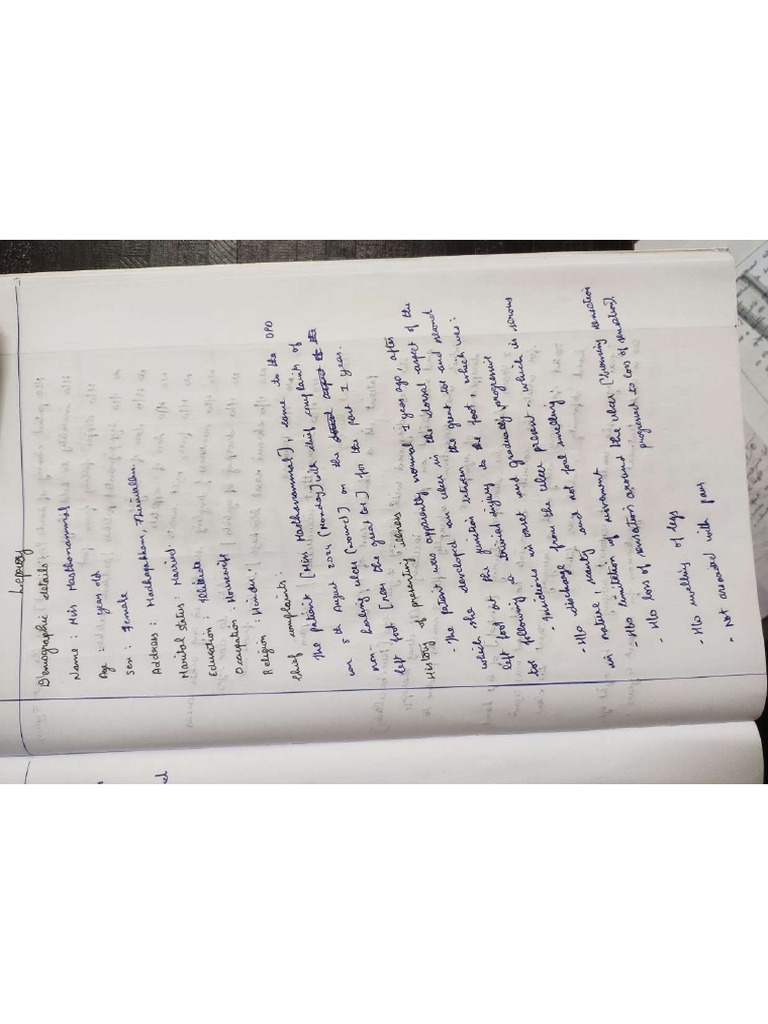 Leprosy
Demographic details:
Name : Miss Masthanammal
Age : years old
Sex : Female
Address : Madhapakkam, Thiruvallur.
Marital Status : Married.
Education : Illiterate
Occupation : Housewife
Religion : Hindu.
Chief complaints:
The patient [Miss Masthavammal], came to the OPD
on 5th August 2024 (Monday) with chief complaints of
non-healing ulcer [wound] on the dorsal aspect of the
left foot [near the great toe] for the past 1 year.
History of presenting illness
- The patient was apparently normal 1 year ago, after
which she developed an ulcer in the dorsal aspect of the
left foot at the junction between the great toe and second
toe following a trivial injury to the foot, which was:
- Insidious in onset and gradually progressive
- H/o discharge from the ulcer present, which is serous
in nature, scanty and not foul smelling.
- H/o limitation of movement
- H/o loss of sensation around the ulcer [burning sensation
progressed to loss of sensation]
- H/o swelling of legs
- Not associated with pain